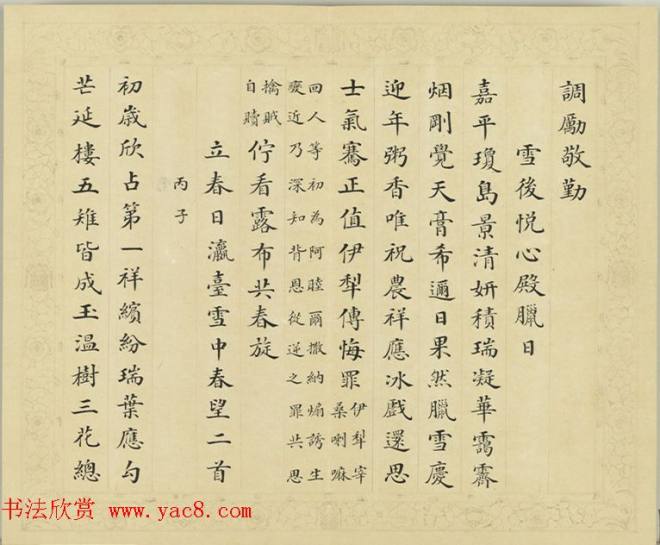 調勵敬勤
雪後悦心殿臘日
嘉平瓊島景清妍積瑞凝華靄霽
烟剛覺天膏希邇日果然臘雪慶
迎年粥香唯祝農祥應冰戲還思
士氣騫正值伊犁傳悔罪伊犁宰桑喇嘛
回人等初為阿睦爾撒納煽誘生
變近乃深知背恩從逆之罪共思
擒賊自贖佇看露布共春旋
立春日瀛臺雪中春望二首
丙子
初歲欣占第一祥繽紛瑞葉應勾
芒延樓五雉皆成玉温樹三花總
书法欣赏 www.yac8.com